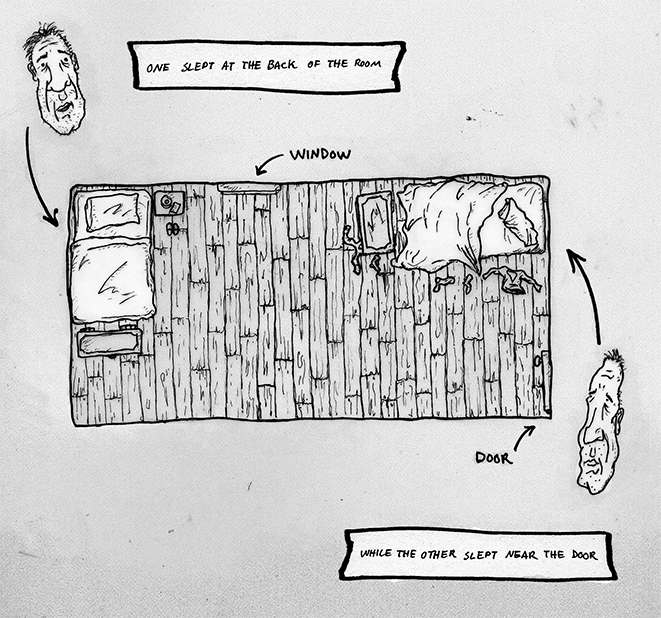 ONE SLEPT AT THE BACK OF THE ROOM
WINDOW
DOOR
WHILE THE OTHER SLEPT NEAR THE DOOR